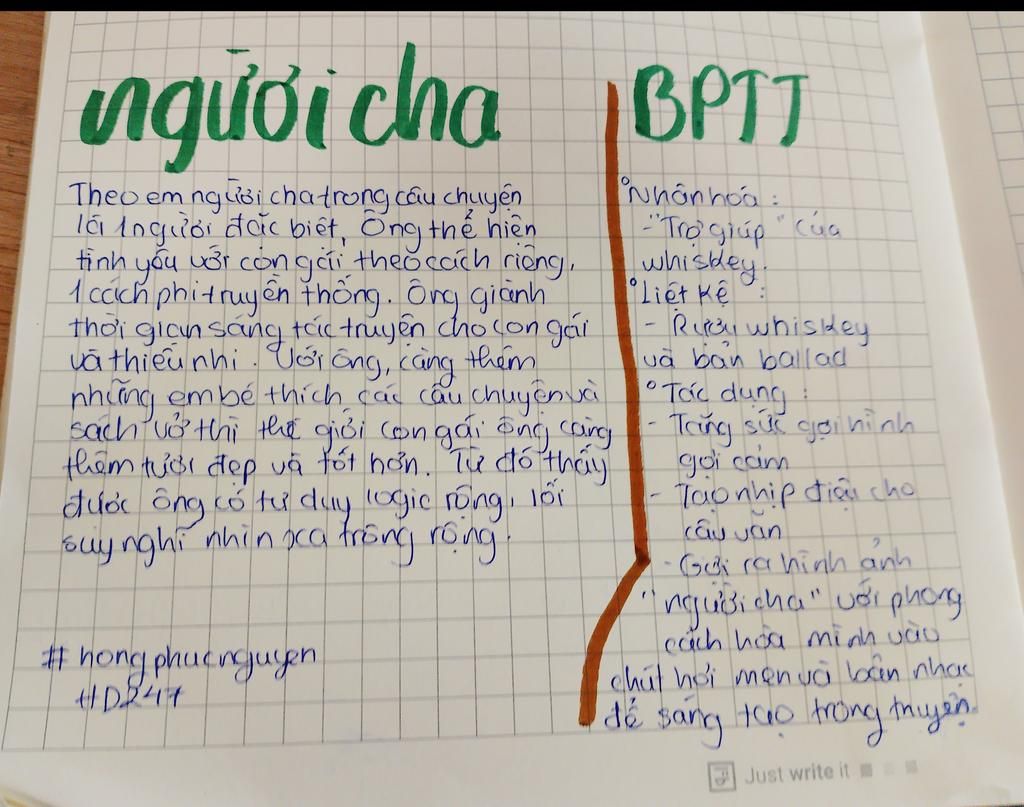 người cha
Theo em người cha trong câu chuyện
là 1 người đặc biệt, Ông thể hiện
tình yêu với con gái theo cách riêng,
1 cách phi truyền thống. Ông giành
thời gian sáng tác truyện cho con gái
và thiếu nhi. Với ông, càng thêm
những em bé thích các câu chuyện và
sách vở thì thế giới con gái ông càng
thêm tươi đẹp và tốt hơn. Từ đó thấy
được ông có tư duy logic rộng, lối
suy nghĩ nhìn xa trông rộng.
# hongphucnguyen
HD247
BPTT
° Nhân hoá :
- "Trợ giúp" của
whiskey.
° Liệt kê :
- Rượu whiskey
và bản ballad
° Tác dụng :
- Tăng sức gợi hình
gợi cảm
- Tạo nhịp điệu cho
câu văn
- Gợi ra hình ảnh
"người cha" với phong
cách hòa mình vào
chút hơi men và bản nhạc
để sáng tạo trong truyện.
Just write it